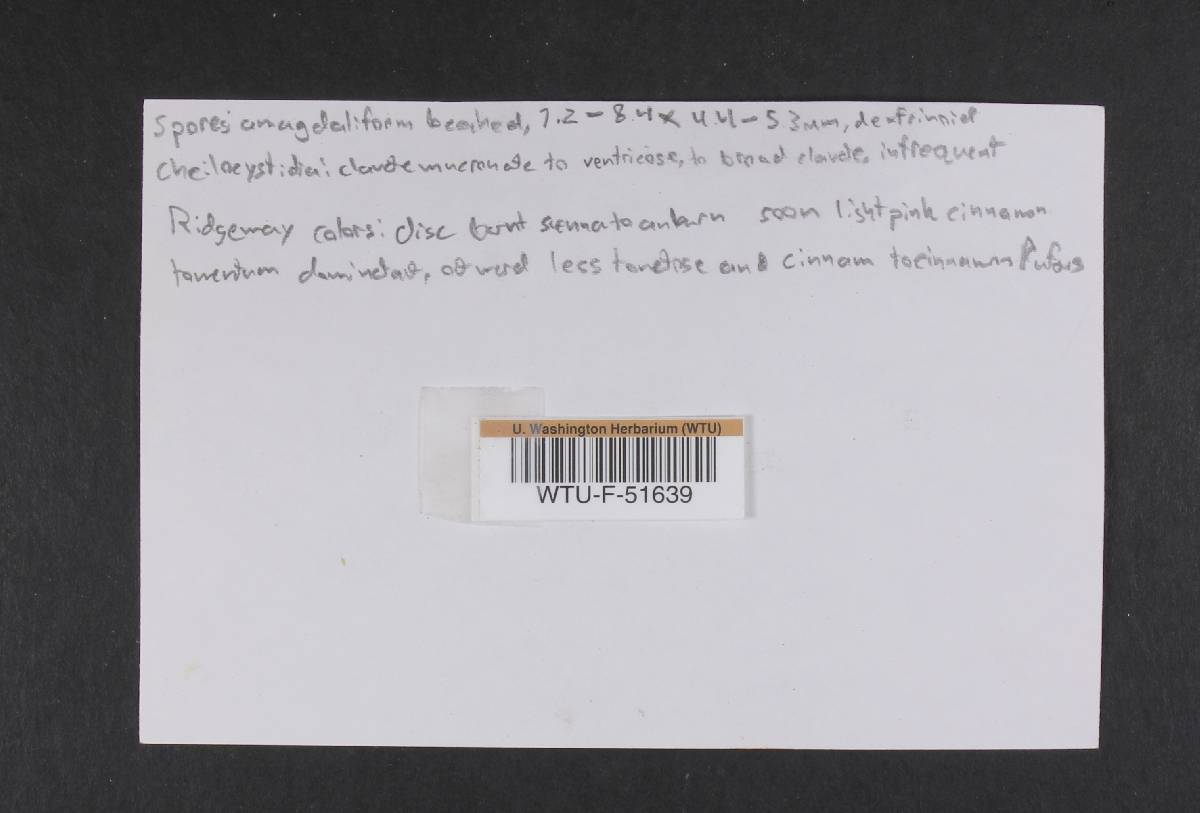 Spores amagdaliform beaked, 7.2 - 8.4 x 4.4 - 5.3 µm, dextrinoid
Cheilocystidia: clavate mucronate to ventricose, to broad clavate, infrequent
Ridgeway colors: disc burnt sienna to auburn soon light pink cinnamon
tomentum dominetant, less tomentose and cinnam to cinnamon Rufous
U. Washington Herbarium (WTU)
WTU-F-51639